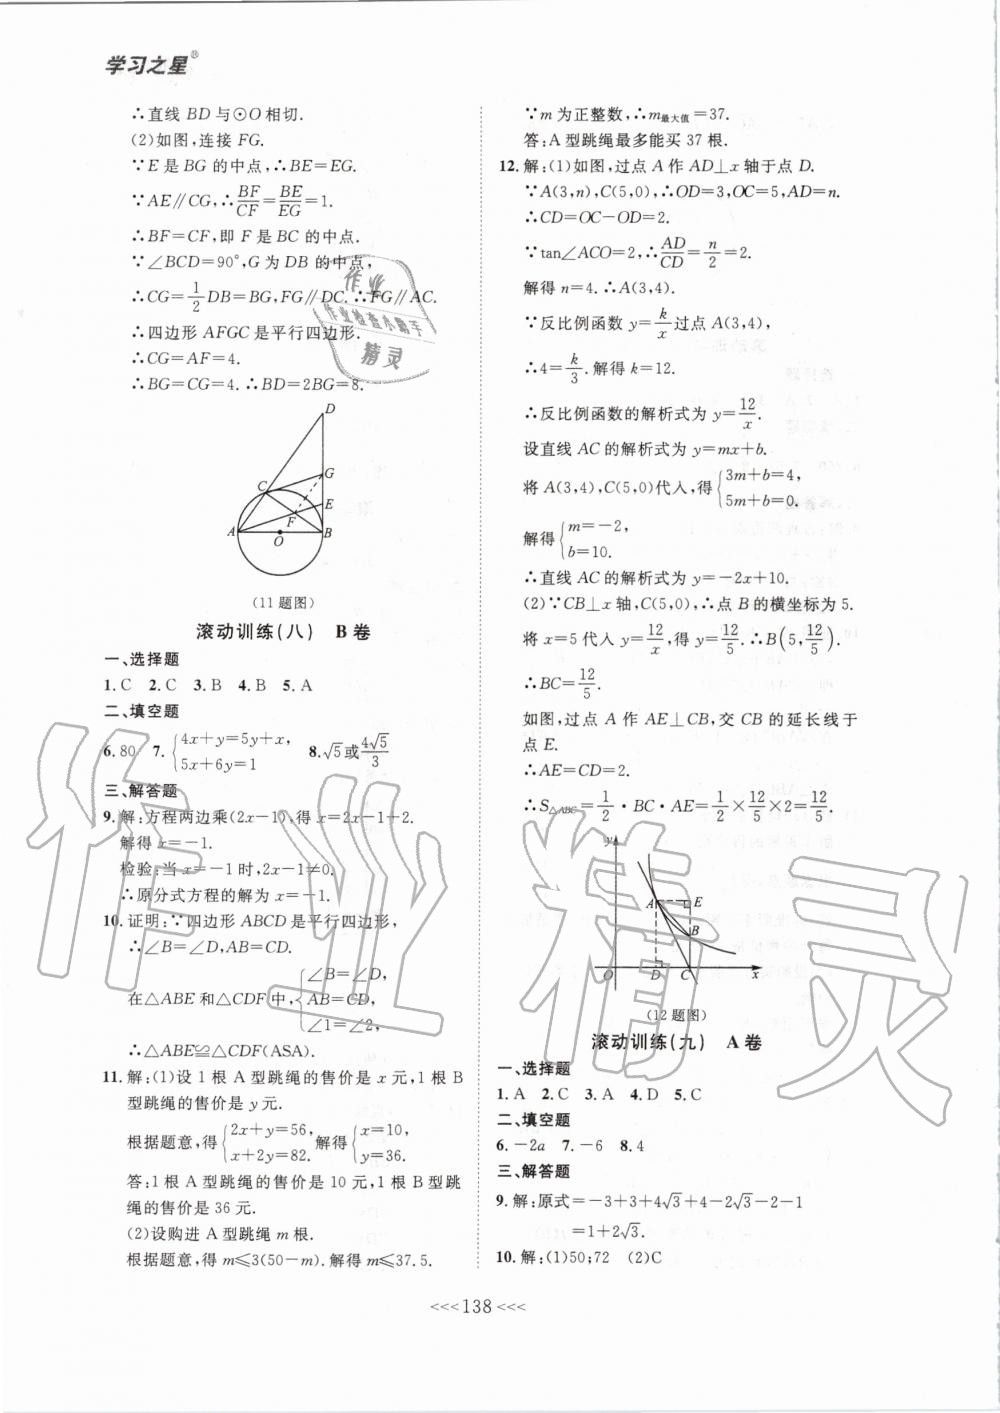 学习之星®
∴直线 BD 与⊙O 相切.
(2)如图,连接 FG.
∵E 是 BG 的中点,∴BE=EG.
∵AE∥CG,∴BF/CF=BE/EG=1.
∴BF=CF,即 F 是 BC 的中点.
∵∠BCD=90°,G 为 DB 的中点,
∴CG=1/2DB=BG,FG∥DC.∴FG∥AC.
∴四边形 AFGC 是平行四边形.
∴CG=AF=4.
∴BG=CG=4.∴BD=2BG=8.
作业
作业检查小助手
精灵
D
G
C
E
F
A
O
B
(11题图)
滚动训练(八) B 卷
一、选择题
1.C 2.C 3.B 4.B 5.A
二、填空题
6.80 7.{4x+y=5y+x,
5x+6y=1 8.√5或4√5/3
三、解答题
9.解:方程两边乘(2x-1),得 x=2x-1+2.
解得 x=-1.
检验:当 x=-1时,2x-1≠0.
∴原分式方程的解为 x=-1.
10.证明:∵四边形 ABCD 是平行四边形,
∴∠B=∠D,AB=CD.
在△ABE 和△CDF 中,{∠B=∠D,
AB=CD,
∠1=∠2,
∴△ABE≌△CDF(ASA).
11.解:(1)设 1 根 A 型跳绳的售价是 x 元,1 根 B
型跳绳的售价是 y 元.
根据题意,得{2x+y=56,
x+2y=82. 解得{x=10,
y=36.
答:1 根 A 型跳绳的售价是 10 元,1 根 B 型跳
绳的售价是 36 元.
(2)设购进 A 型跳绳 m 根.
根据题意,得 m≤3(50-m).解得 m≤37.5.
∵m 为正整数,∴m最大值=37.
答:A 型跳绳最多能买 37 根.
12.解:(1)如图,过点 A 作 AD⊥x 轴于点 D.
∵A(3,n),C(5,0),∴OD=3,OC=5,AD=n.
∴CD=OC-OD=2.
∵tan∠ACO=2,∴AD/CD=n/2=2.
解得 n=4.∴A(3,4).
∵反比例函数 y=k/x过点 A(3,4),
∴4=k/3.解得 k=12.
∴反比例函数的解析式为 y=12/x.
设直线 AC 的解析式为 y=mx+b.
将 A(3,4),C(5,0)代入,得{3m+b=4,
5m+b=0.
解得{m=-2,
b=10.
∴直线 AC 的解析式为 y=-2x+10.
(2)∵CB⊥x 轴,C(5,0),∴点 B 的横坐标为 5.
将 x=5代入 y=12/x,得 y=12/5.∴B(5,12/5).
∴BC=12/5.
如图,过点 A 作 AE⊥CB,交 CB 的延长线于
点 E.
∴AE=CD=2.
∴S△ABC=1/2·BC·AE=1/2×12/5×2=12/5.
y
A
E
B
O
D
C
x
(12题图)
滚动训练(九) A 卷
一、选择题
1.A 2.C 3.A 4.D 5.C
二、填空题
6.-2a 7.-6 8.4
三、解答题
9.解:原式=-3+3+4√3+4-2√3-2-1
=1+2√3.
10.解:(1)50;72 (2)C
<<<138<<<
作业精灵